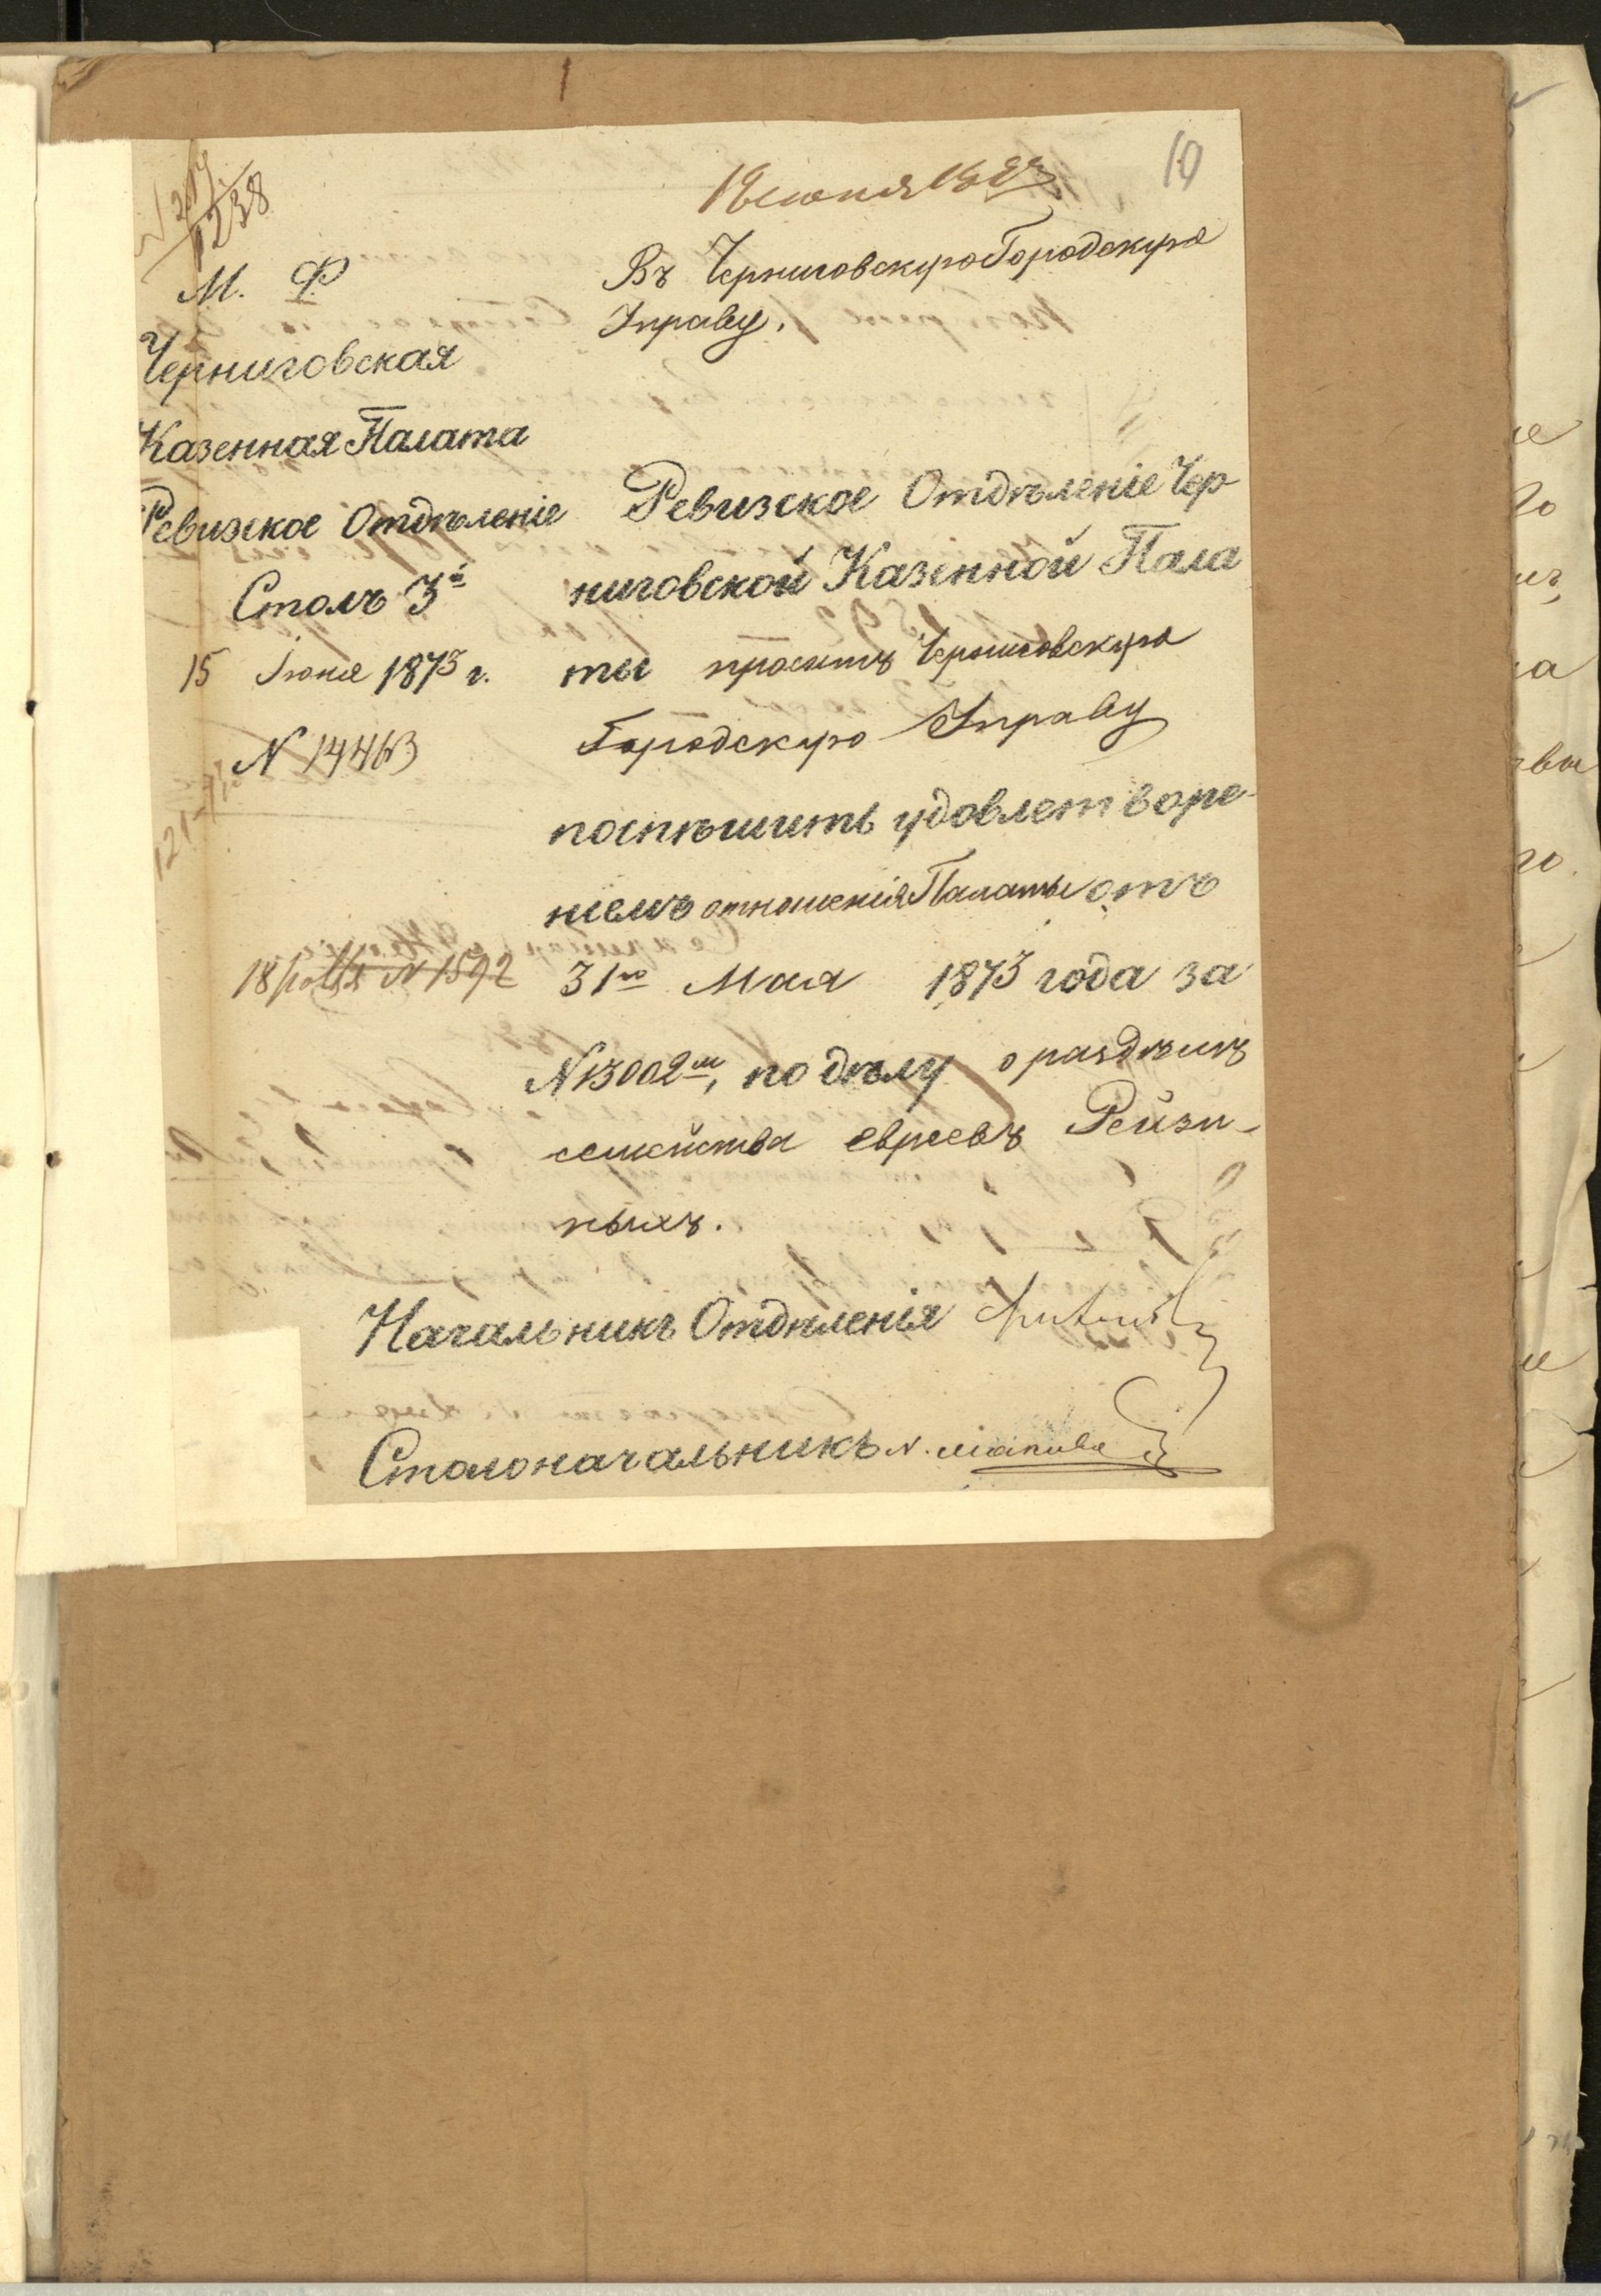 10
1238
М. Ф
Черниговская
Казенная Палата
Ревизское Отдѣленіе
Столъ 3й
15 Іюня 1873 г.
N 14463
Въ Черниговскую Городскую
Управу.
Ревизское Отдѣленіе Чер
ниговской Казенной Пала
ты проситъ Черниговскую
Городскую Управу
поспѣшить удовлетворе-
ніемъ отношенія Палаты отъ
18 N 1592
31го Мая 1873 года за
N 13002м, по дѣлу о раздѣлѣ
семейства евреевъ Рейзи-
ныхъ.
Начальникъ Отдѣленія
Столоначальникъ